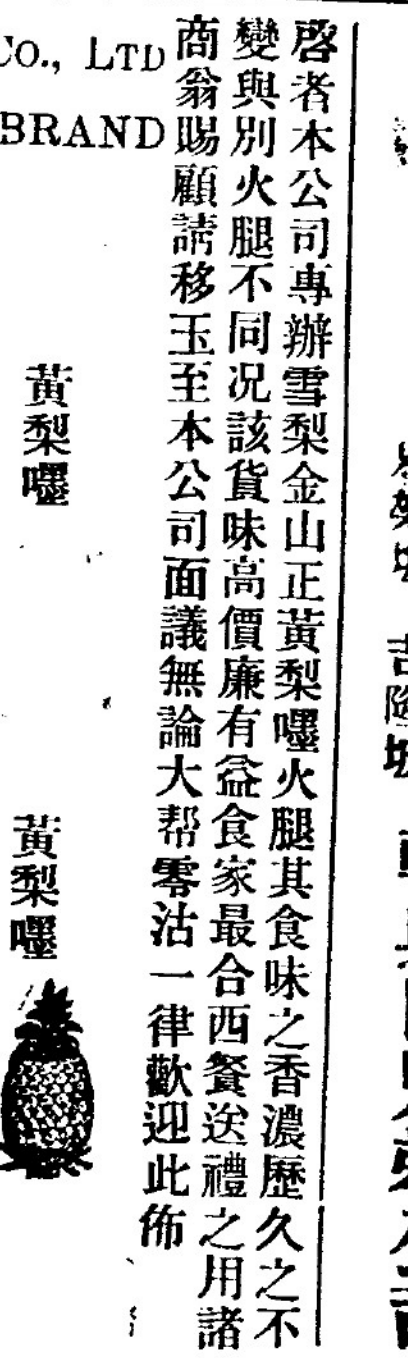 啓者本公司專辦雪梨金山正黃梨嘜火腿其食味之香濃歷久之不
變與別火腿不同况該貨味高價廉有益食家最合西餐送禮之用諸
商翁賜顧請移玉至本公司面議無論大帮零沽一律歡迎此佈
CO., LTD
BRAND
黃梨嘜
黃梨嘜